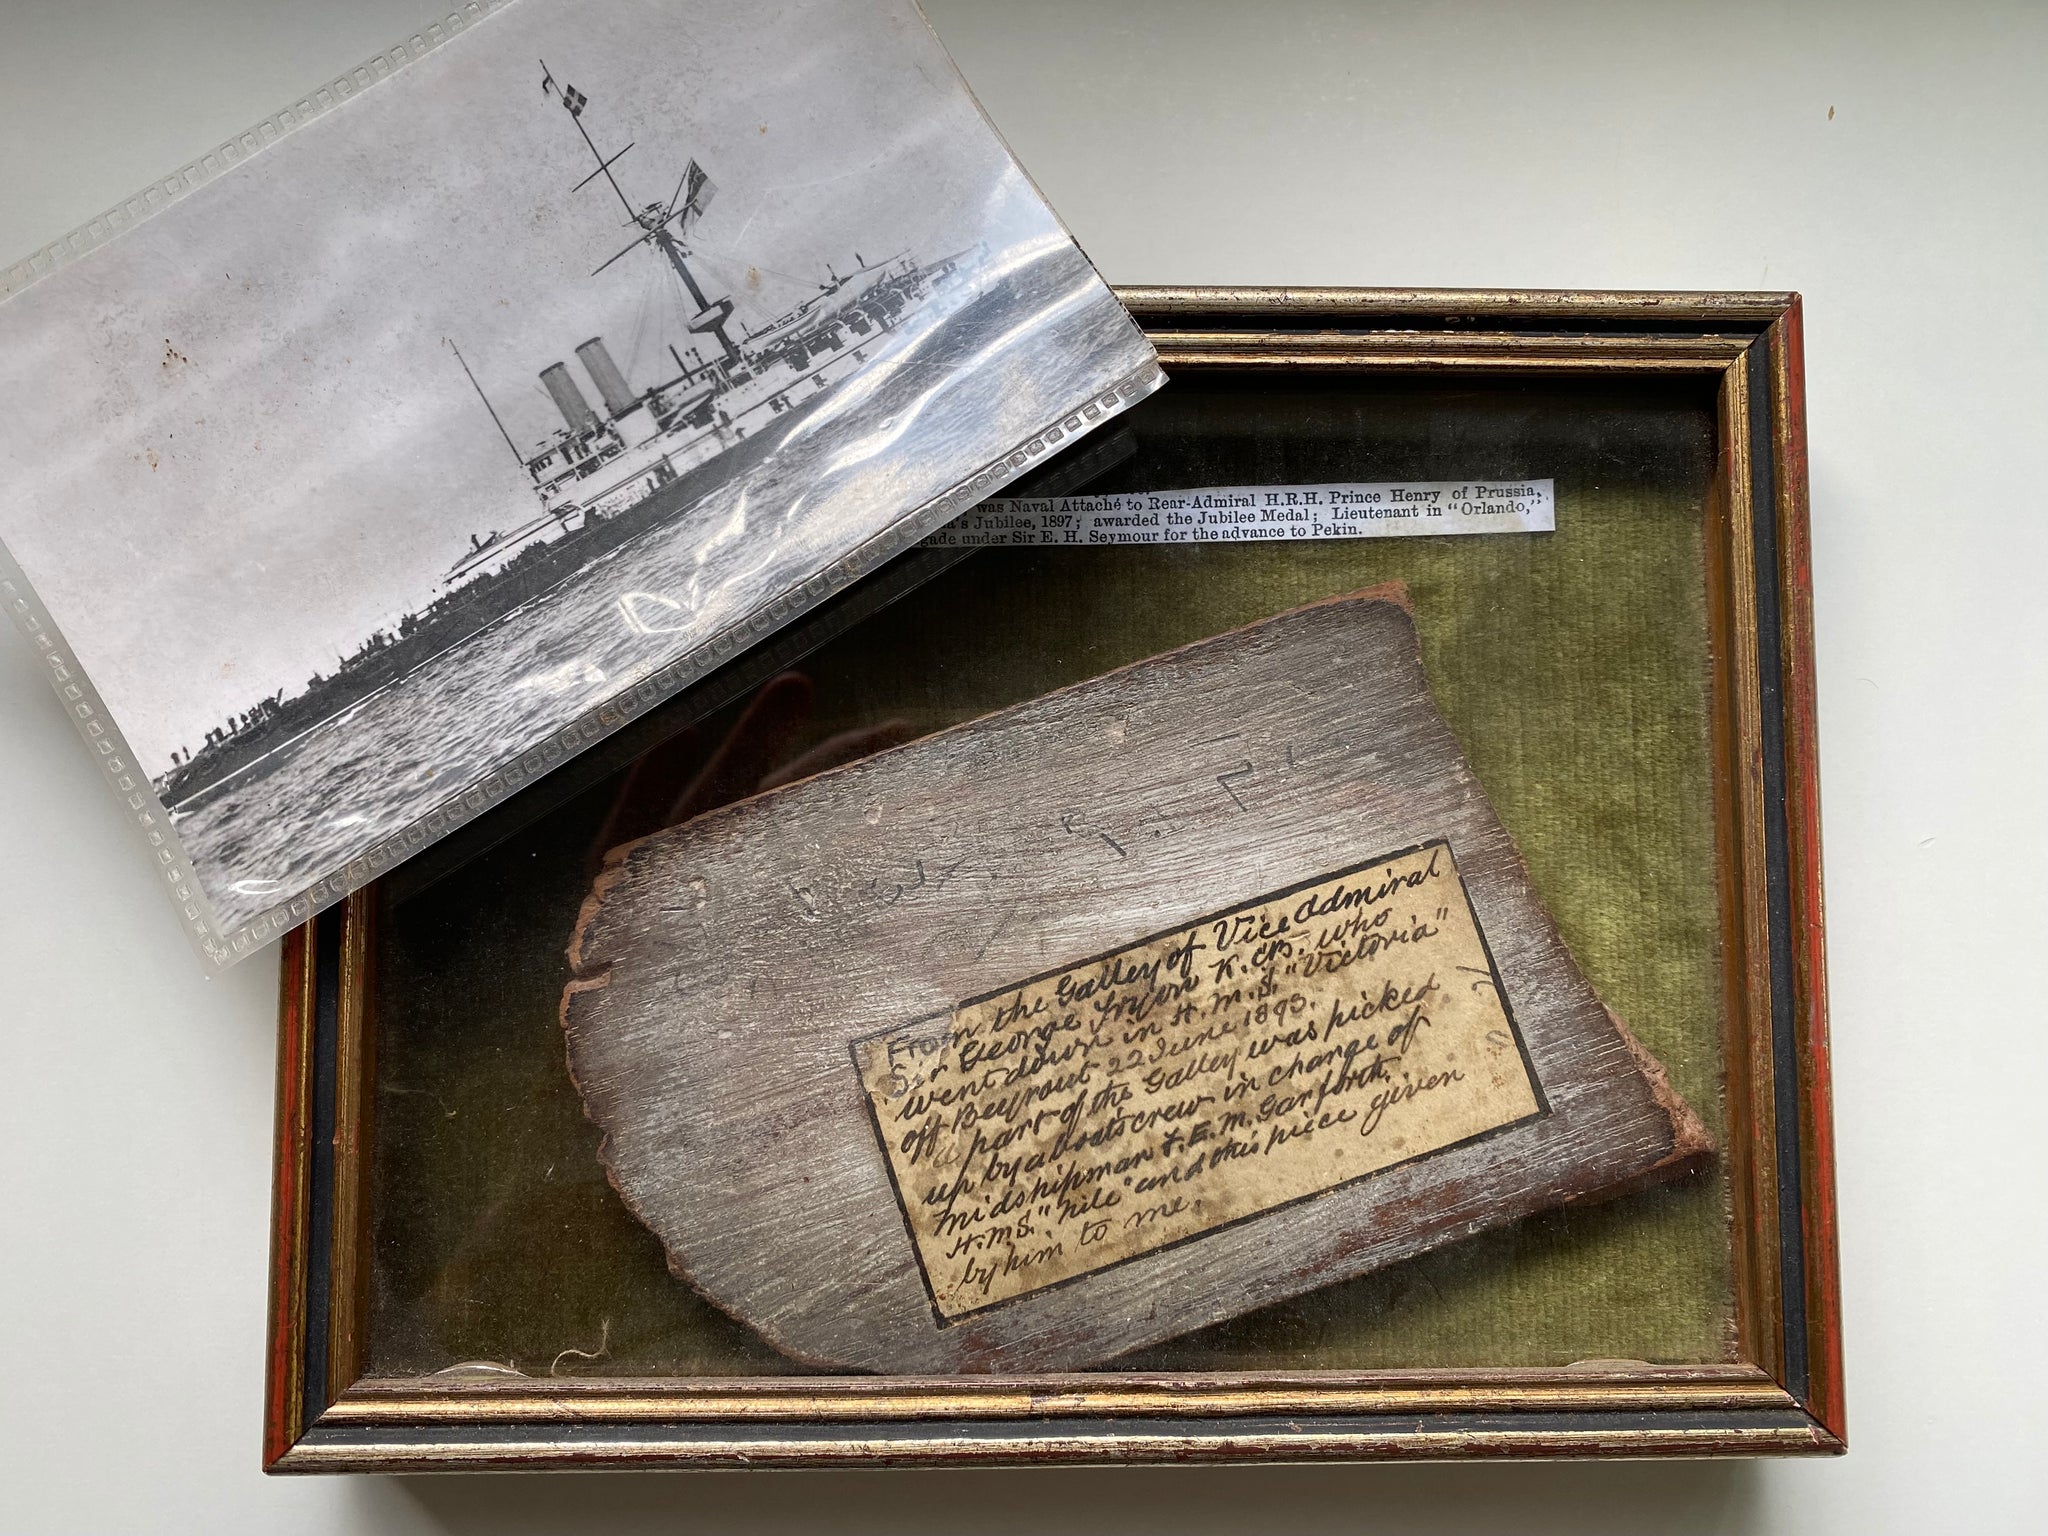 was Naval Attaché to Rear-Admiral H.R.H. Prince Henry of Prussia,
's Jubilee, 1897; awarded the Jubilee Medal; Lieutenant in "Orlando,"
gade under Sir E. H. Seymour for the advance to Pekin.
From the Galley of Vice Admiral
Sir George Tryon K.C.B. who
went down in H.M.S. "Victoria"
off Beyrout 22 June 1893.
a part of the Galley was picked
up by a boats crew in charge of
Midshipman F.E.M. Garforth.
H.M.S. "Nile" and this piece given
by him to me.